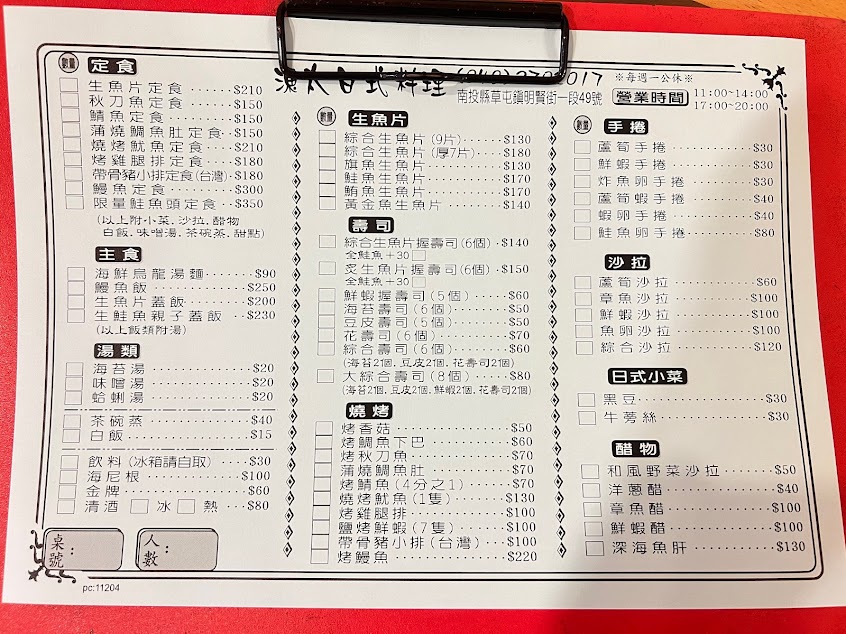 漁太日式料理
※每週一公休※
南投縣草屯鎮明賢街一段49號
營業時間 11:00~14:00
17:00~20:00
數量 定食
生魚片定食 ······$210
秋刀魚定食 ·····$150
鯖魚定食 ·······$150
蒲燒鯛魚肚定食 ·$150
燒烤魷魚定食 ····$210
烤雞腿排定食 ····$180
帶骨豬小排定食(台灣) ·$180
鰻魚定食 ·······$300
限量鮭魚頭定食 ···$350
(以上附小菜.沙拉.醋物
白飯.味噌湯.茶碗蒸.甜點)
主食
海鮮烏龍湯麵 ······$90
鰻魚飯 ··········$250
生魚片蓋飯 ·······$200
生鮭魚親子蓋飯 ··$230
(以上飯類附湯)
湯類
海苔湯 ··········$20
味噌湯 ··········$20
蛤蜊湯 ··········$20
茶碗蒸 ··········$40
白飯 ···········$15
飲料(冰箱請自取) ····$30
海尼根 ··········$100
金牌 ···········$60
清酒 冰 熱 ···$80
桌號：
人數：
pc:11204
數量 生魚片
綜合生魚片(9片) ······$130
綜合生魚片(厚7片) ····$180
旗魚生魚片 ·········$130
鮭魚生魚片 ·········$170
鮪魚生魚片 ·········$170
黃金魚生魚片 ·······$140
壽司
綜合生魚片握壽司(6個) ·$140
全鮭魚+30
炙生魚片握壽司(6個) ·$150
全鮭魚+30
鮮蝦握壽司(5個) ·····$60
海苔壽司(6個) ·······$50
豆皮壽司(5個) ·······$50
花壽司(6個) ········$70
綜合壽司(6個) ·······$60
(海苔2個.豆皮2個.花壽司2個)
大綜合壽司(8個) ·····$80
(海苔2個.豆皮2個.鮮蝦2個.花壽司2個)
燒烤
烤香菇 ···········$50
烤鯛魚下巴 ········$60
烤秋刀魚 ·········$70
蒲燒鯛魚肚 ········$70
烤鯖魚(4分之1) ·····$70
燒烤魷魚(1隻) ······$130
烤雞腿排 ·········$100
鹽烤鮮蝦(7隻) ······$100
帶骨豬小排(台灣) ···$100
烤鰻魚 ···········$220
數量 手捲
蘆筍手捲 ·········$30
鮮蝦手捲 ·········$30
炸魚卵手捲 ········$30
蘆筍蝦手捲 ········$40
蝦卵手捲 ·········$40
鮭魚卵手捲 ········$80
沙拉
蘆筍沙拉 ·········$60
章魚沙拉 ·········$100
鮮蝦沙拉 ·········$100
魚卵沙拉 ·········$100
綜合沙拉 ·········$120
日式小菜
黑豆 ············$30
牛蒡絲 ···········$30
醋物
和風野菜沙拉 ·······$50
洋蔥醋 ···········$40
章魚醋 ···········$100
鮮蝦醋 ···········$100
深海魚肝 ·········$130